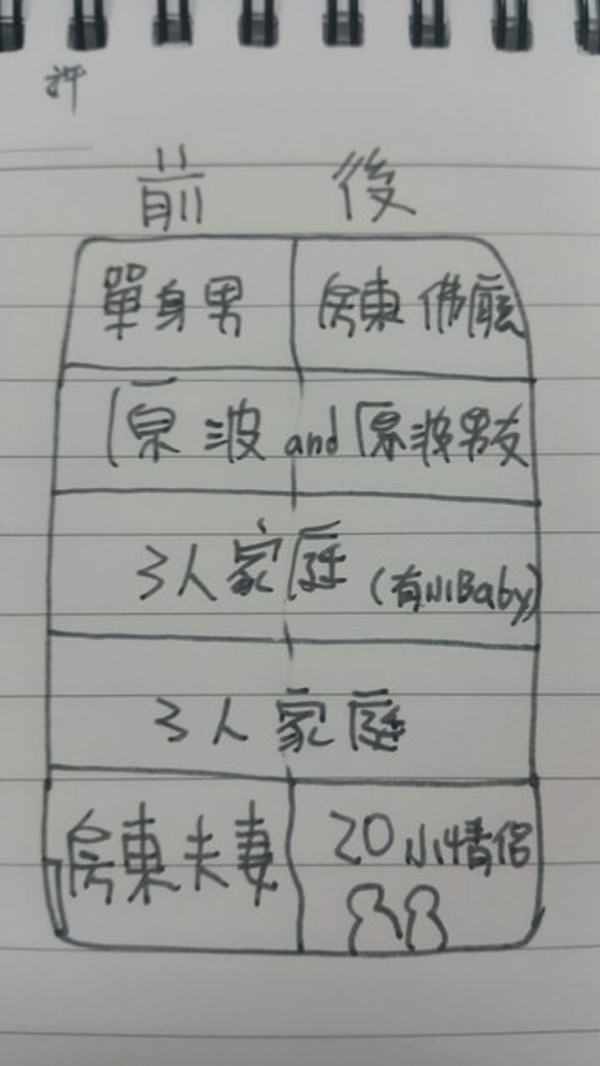 許
前 後
單身男 房東佛廳
原波 and 原波男友
3人家庭 (有小Baby)
3人家庭
房東夫妻 20小情侶